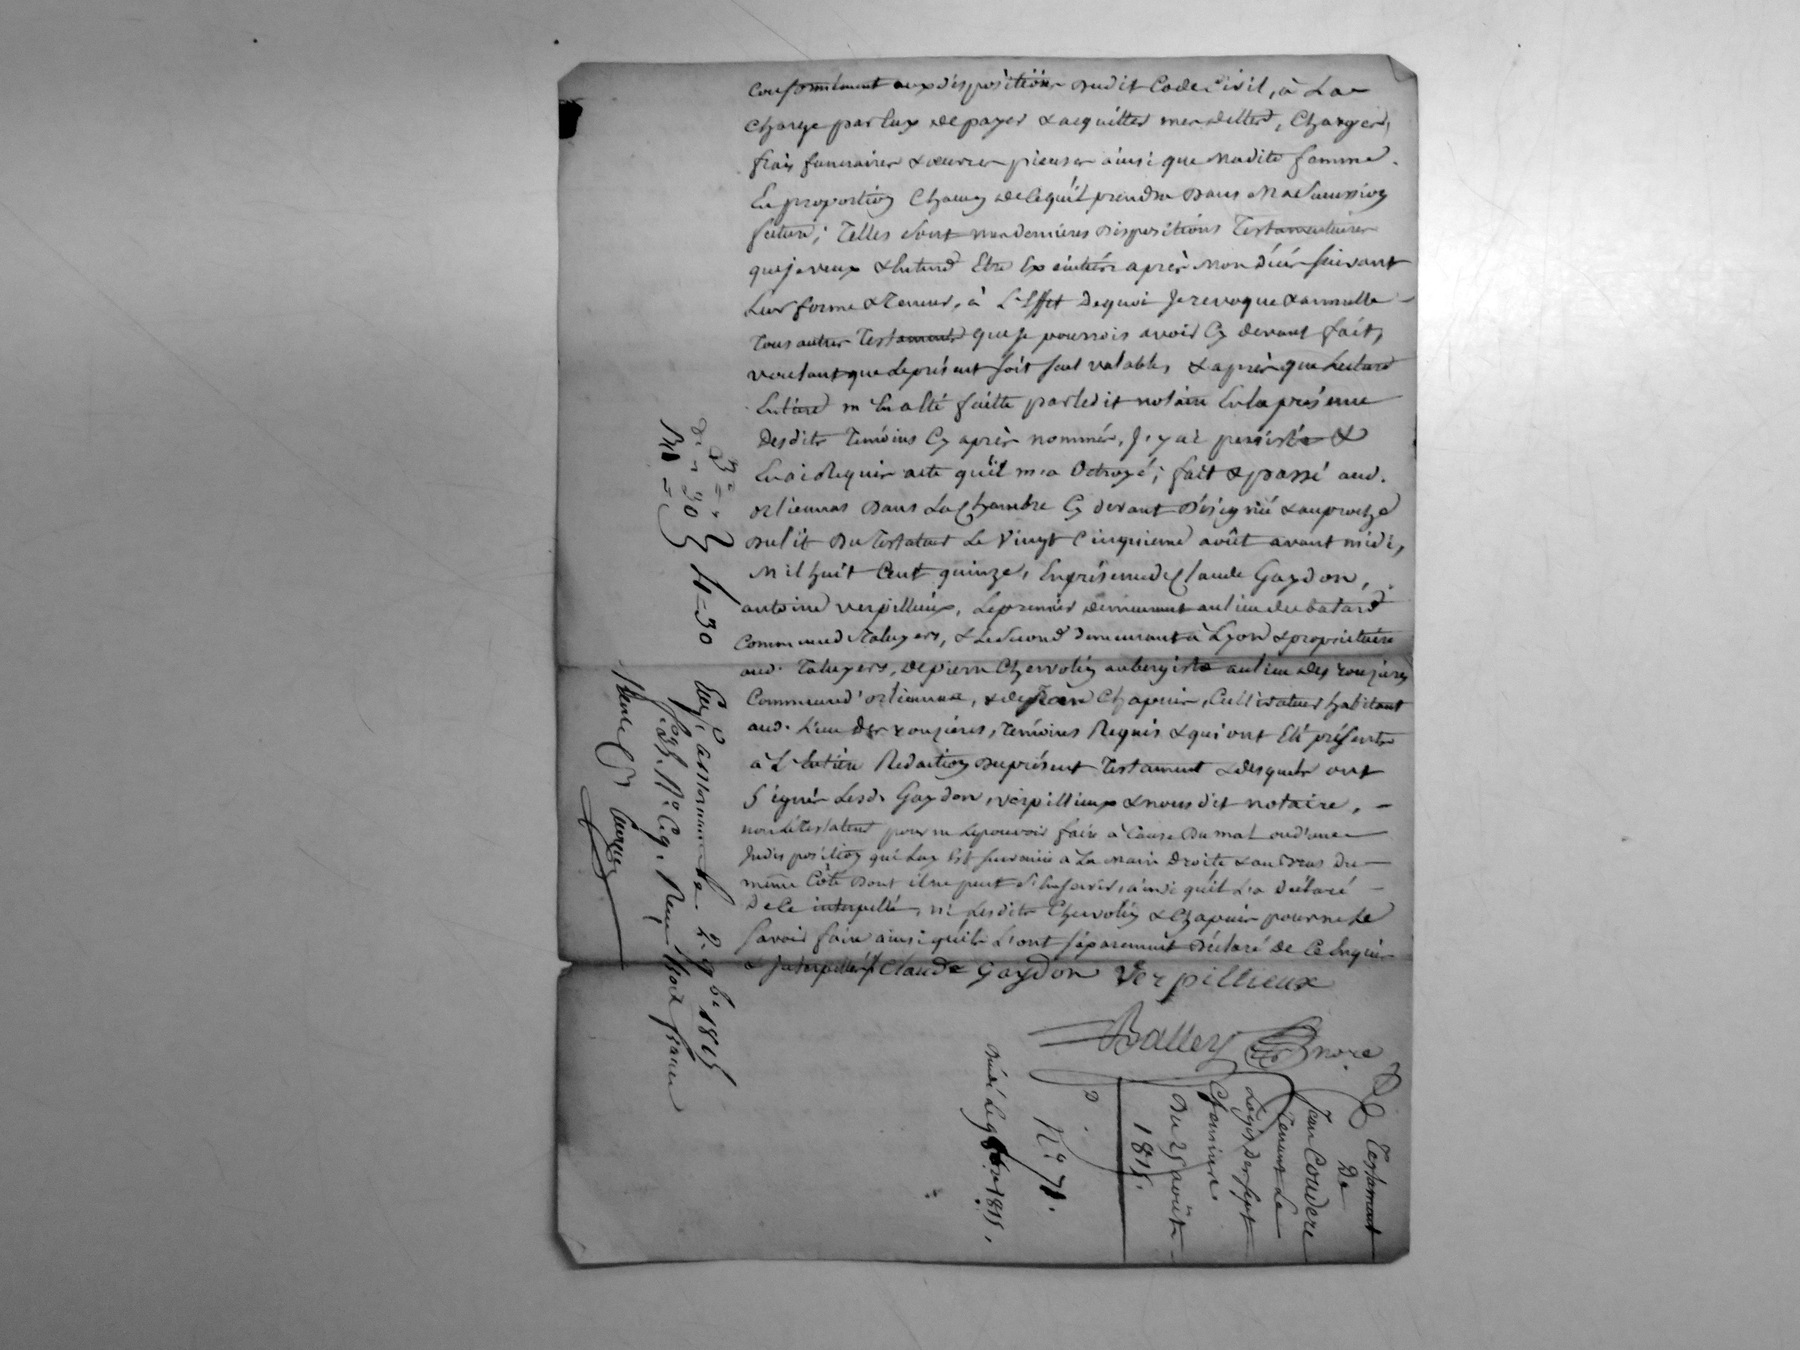 conformement aux dispositions dudit Code Civil, à La
charge par Eux de payer & acquitter mes dettes, Charges,
frais funeraires & œuvres pieuses ainsi que Madite femme.
En proportion Chacun de Ce qu'il prendra Dans Ma Succession
future; Telles sont mes dernières Dispositions Testamentaires
que je veux & Entend Etre Exécutées après Mon décès suivant
Leur forme & Teneur, à L'Effet de quoi Je revoque & annulle
Tous autres Testaments que je pourrois avoir Cy devant fait,
voulant que le présent soit seul valable, & après que Lecture
Entière m'En a Eté faitte par ledit notaire En la présence
Desdits Temoins Cy après nommés, J'y ai persisté &
En ai Requis acte qu'il m'a Octroyé; fait & passé aud.
orlienas Dans La Chambre Cy devant Désignée & au proche
du lit Du Testateur Le Vingt Cinquieme août avant midi,
Mil huit Cent quinze, En présence de Claude Gaydon,
antoine verpillieux, Le premier demeurant au lieu du batard
Commune de Taluyers, & Le Second demeurant à Lyon & propriétaire
aud. Taluyers, de pierre Chervolin aubergiste au lieu des
Commune d'orlienas, & de Jean Chapuis, Cultivateur habitant
aud. Lieu des, Temoins Requis & qui ont Eté présents
à L'Entière Redaction du présent Testament & desquels ont
Signés Lesd. Gaydon, verpillieux & nous dit notaire,
non Le Testateur pour ne Le pouvoir faire à Cause Du mal ou d'une
Indisposition qui Luy Est survenue à La main Droite & au bras Du
même Côté Dont il ne peut S'En servir, ainsi qu'il L'a Déclaré
De Ce interpellé, ni Lesdits Chervolin & Chapuis pour ne Le
Savoir faire ainsi qu'ils L'ont séparement Déclaré de Ce Enquis
& Interpellés / Claude Gaydon Verpillieux
Balley nore
Testament
De
Jean Coudere
Tenant Le
Logis Des Sept
Chemins
Du 25 août
1815.
N° 71.
1815.
2. 9b. 1815
4 = 30